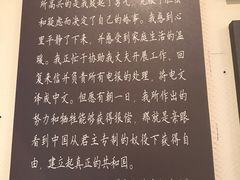 所高兴的是我鼓起了勇气，克服了傲慢
和疑虑而决定了自己的婚事。我感到心
里平静了下来，并感受到家庭生活的温
暖。我正忙于协助我丈夫开展工作，回
复来信并负责所有电报的处理，将电文
译成中文。但愿有朝一日，我所作出的
努力和牺牲能够获得报偿，那就是亲眼
看到中国从君主专制的奴役下获得自
由，建立起真正的共和国。